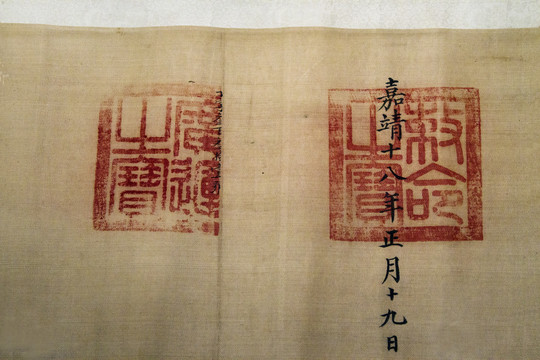 嘉靖十八年正月十九日
敕命之寶
廣運之寶